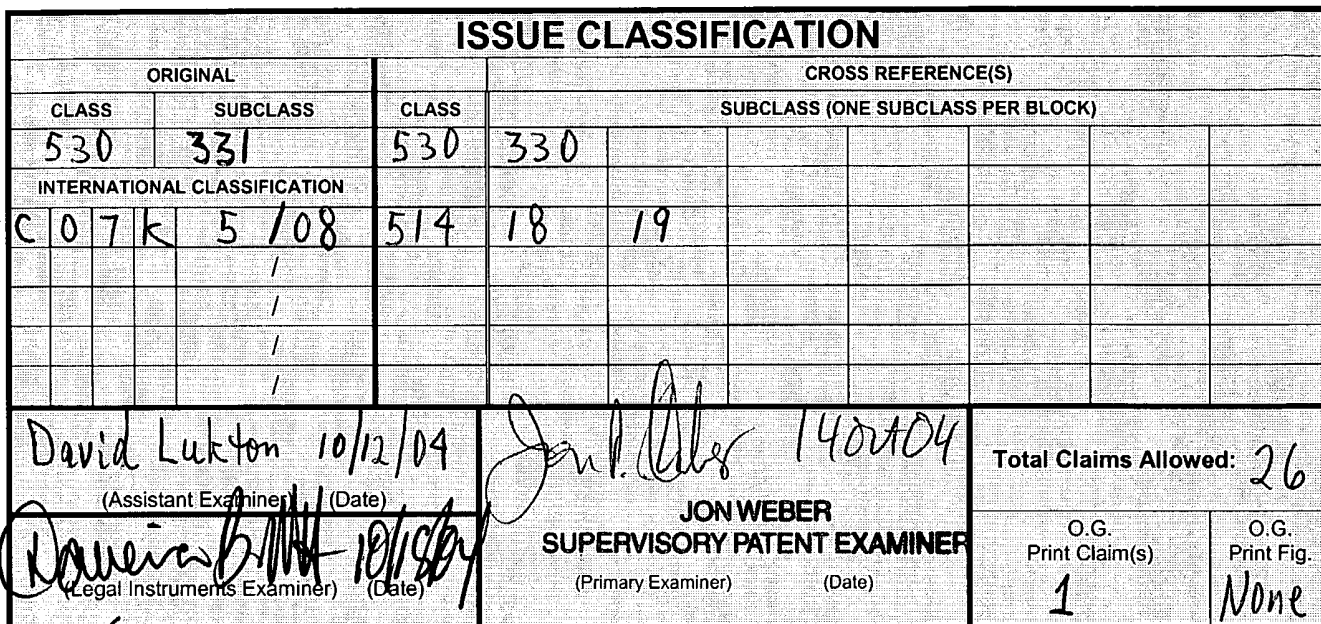 ISSUE CLASSIFICATION
ORIGINAL CROSS REFERENCE(S)
CLASS SUBCLASS CLASS SUBCLASS (ONE SUBCLASS PER BLOCK)
530 331 530 330
INTERNATIONAL CLASSIFICATION
C 0 7 K 5 / 08 514 18 19
/
/
/
/
David Lukton 10/12/04
(Assistant Examiner) (Date)
10/18/04
(Legal Instruments Examiner) (Date)
Jon P. Weber 14 Oct 04
JON WEBER
SUPERVISORY PATENT EXAMINER
(Primary Examiner) (Date)
Total Claims Allowed: 26
O.G.
Print Claim(s)
1
O.G.
Print Fig.
None